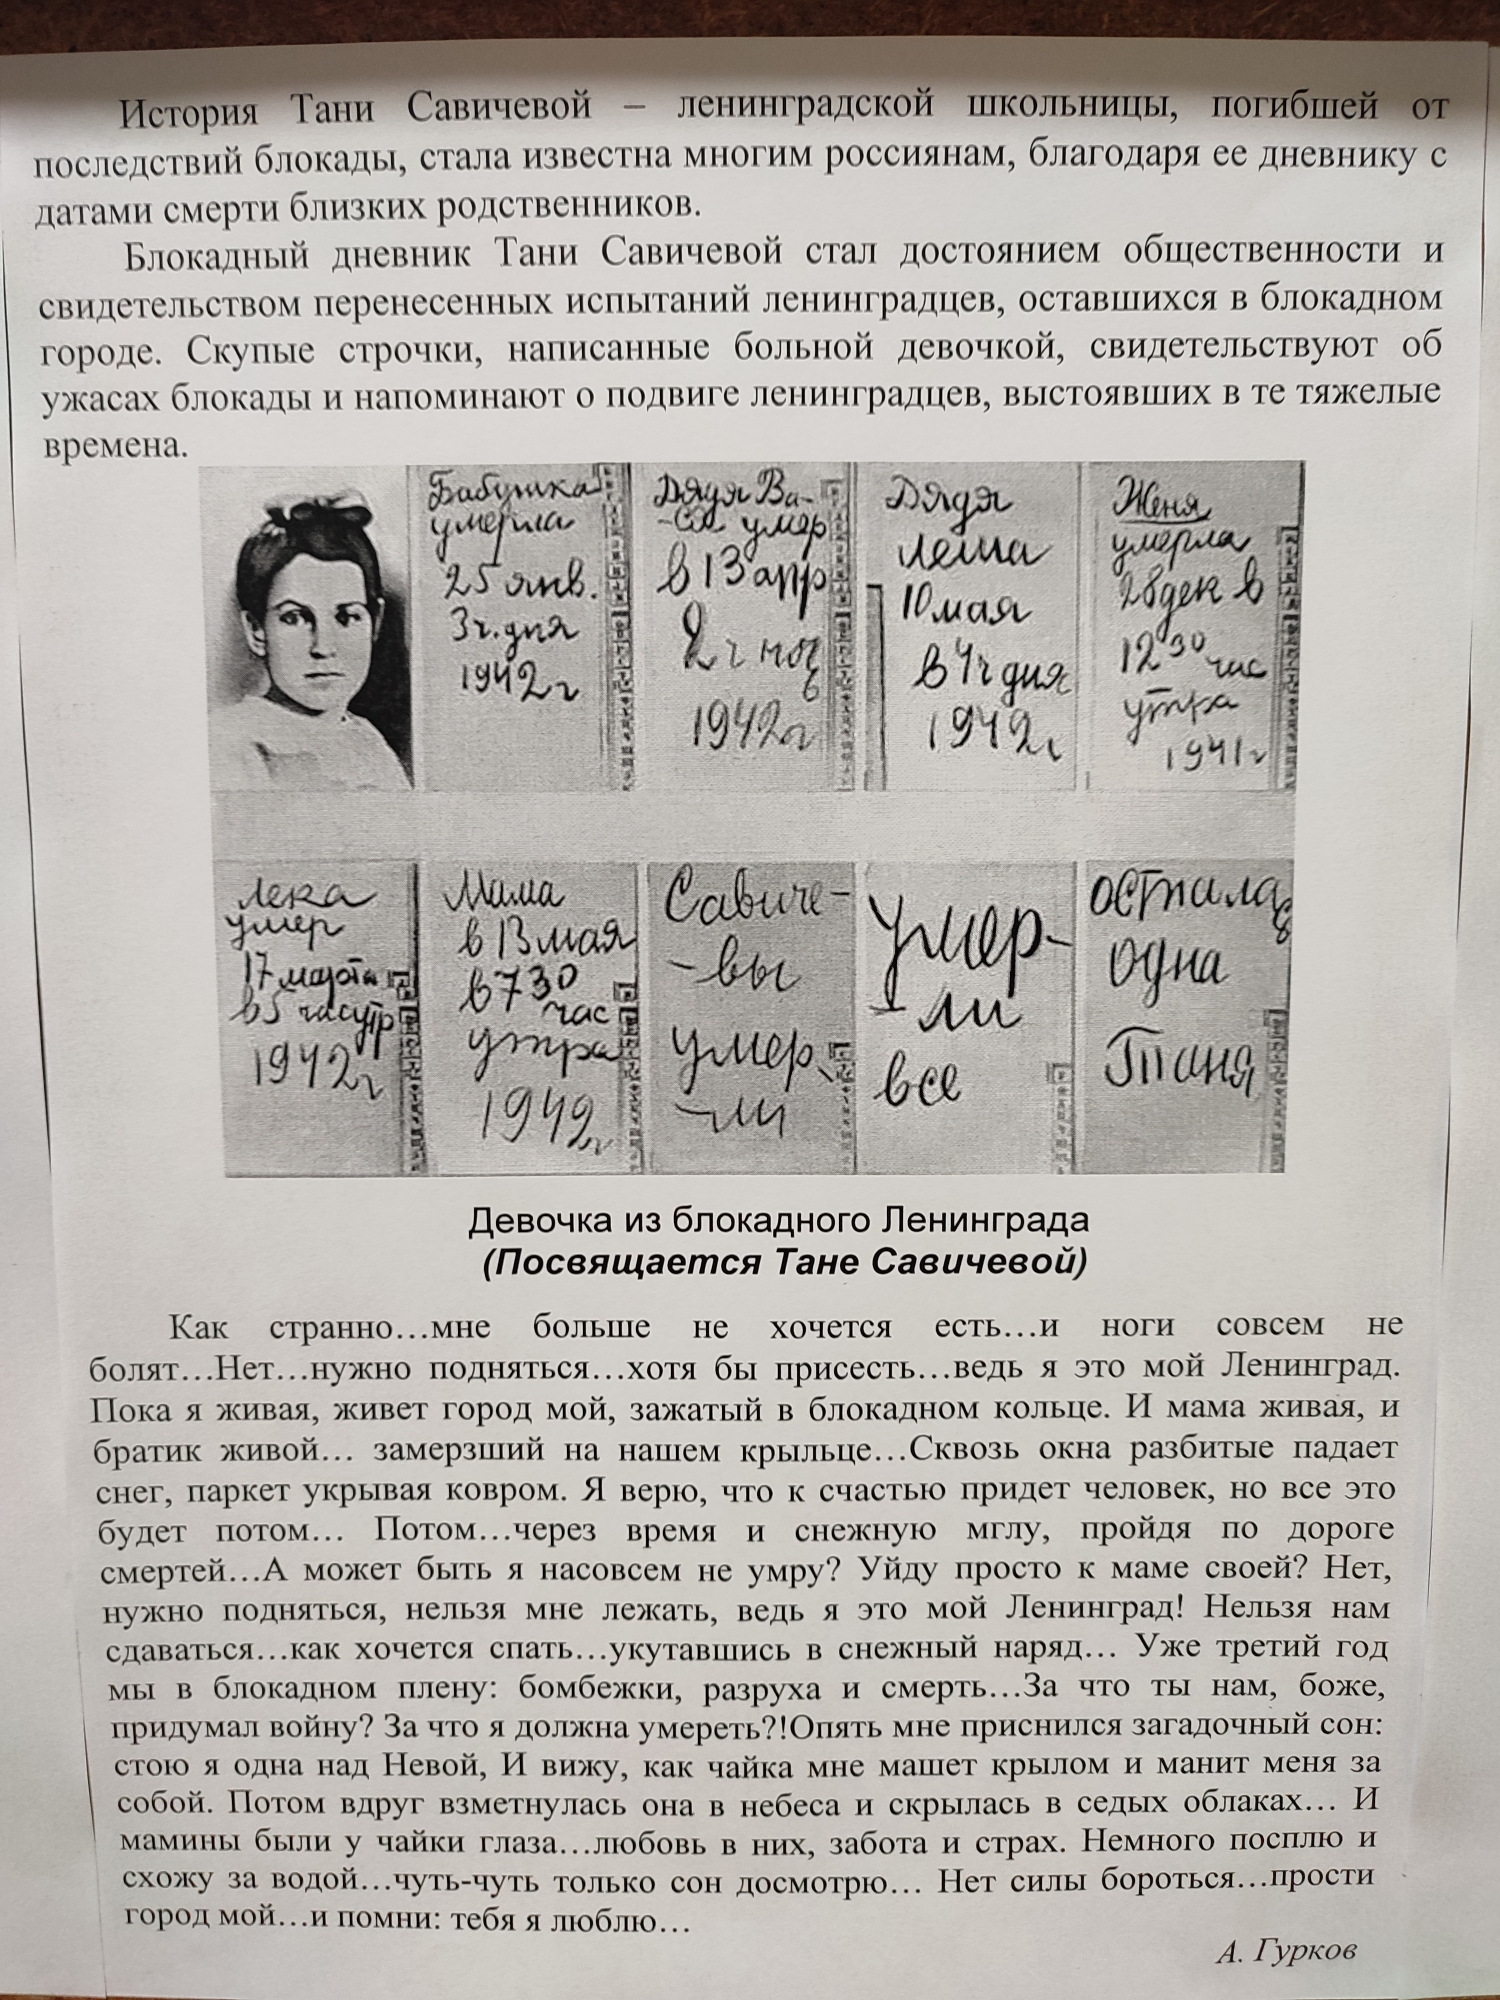 История Тани Савичевой – ленинградской школьницы, погибшей от
последствий блокады, стала известна многим россиянам, благодаря ее дневнику с
датами смерти близких родственников.
Блокадный дневник Тани Савичевой стал достоянием общественности и
свидетельством перенесенных испытаний ленинградцев, оставшихся в блокадном
городе. Скупые строчки, написанные больной девочкой, свидетельствуют об
ужасах блокады и напоминают о подвиге ленинградцев, выстоявших в те тяжелые
времена.
Бабушка
умерла
25 янв.
3 ч. дня
1942 г
Дядя Ва-
-ся умер
в 13 апр
2 ч ноч
ь
1942 г
Дядя
Леша
10 мая
в 4 ч дня
1942 г
Женя
умерла
28 дек в
12 30 час
утра
1941 г
Лека
умер
17 марта
в 5 час утр
1942 г
Мама
в 13 мая
в 7 30
час
утра
1942 г
Савиче-
-вы
умер-
-ли
Умер-
-ли
все
Осталась
одна
Таня
Девочка из блокадного Ленинграда
(Посвящается Тане Савичевой)
Как странно…мне больше не хочется есть…и ноги совсем не
болят…Нет…нужно подняться…хотя бы присесть…ведь я это мой Ленинград.
Пока я живая, живет город мой, зажатый в блокадном кольце. И мама живая, и
братик живой… замерзший на нашем крыльце…Сквозь окна разбитые падает
снег, паркет укрывая ковром. Я верю, что к счастью придет человек, но все это
будет потом… Потом…через время и снежную мглу, пройдя по дороге
смертей…А может быть я насовсем не умру? Уйду просто к маме своей? Нет,
нужно подняться, нельзя мне лежать, ведь я это мой Ленинград! Нельзя нам
сдаваться…как хочется спать…укутавшись в снежный наряд… Уже третий год
мы в блокадном плену: бомбежки, разруха и смерть…За что ты нам, боже,
придумал войну? За что я должна умереть?!Опять мне приснился загадочный сон:
стою я одна над Невой, И вижу, как чайка мне машет крылом и манит меня за
собой. Потом вдруг взметнулась она в небеса и скрылась в седых облаках… И
мамины были у чайки глаза…любовь в них, забота и страх. Немного посплю и
схожу за водой…чуть-чуть только сон досмотрю… Нет силы бороться…прости
город мой…и помни: тебя я люблю…
А. Гурков